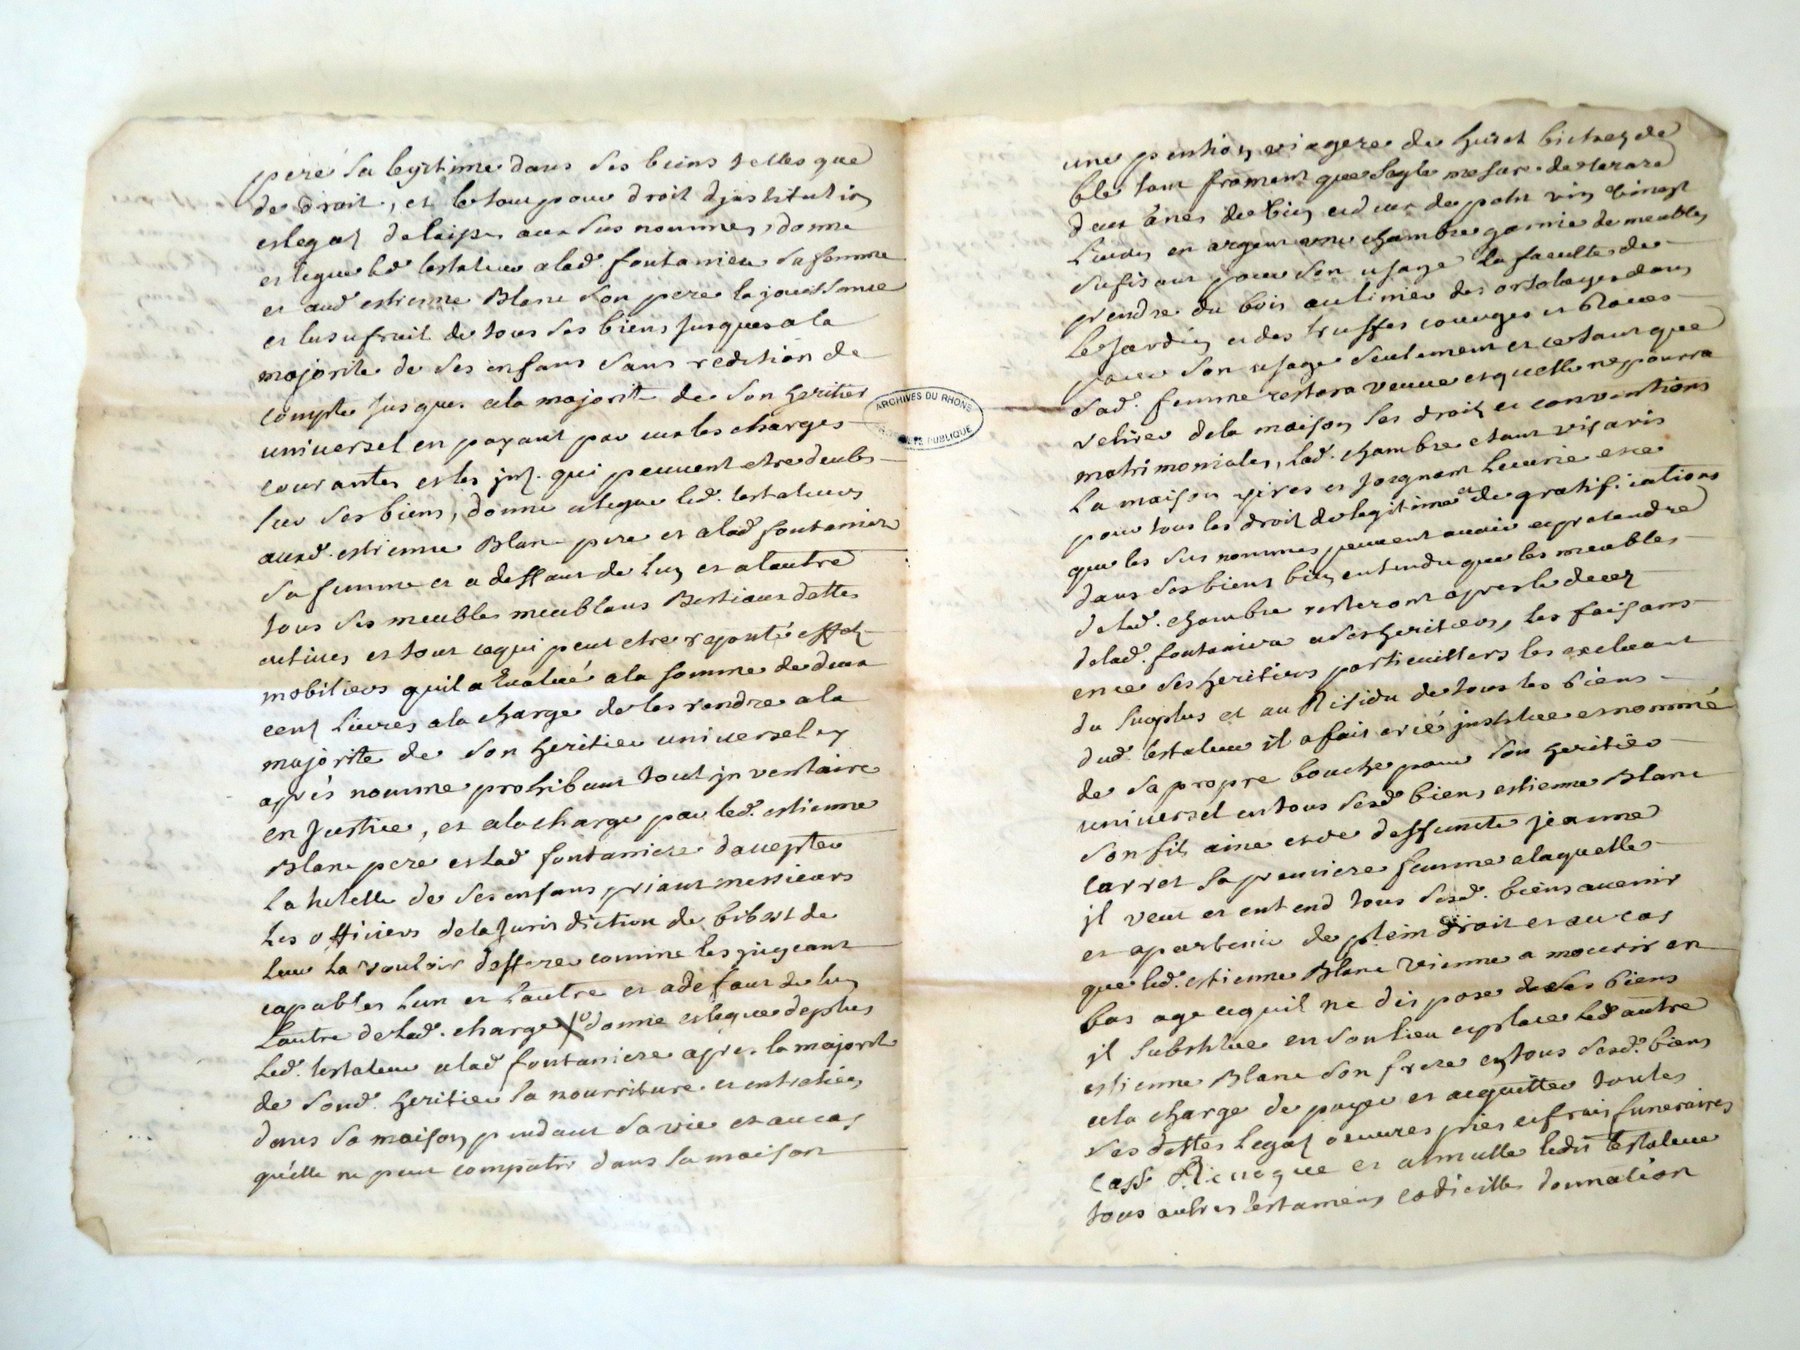 pere sa legitime dans ses biens telles que
de droit, et le tout pour droit djnstitution
et legaz delaipe aux sus nommes, donne
et legue led. testateur a lad. fontaniere sa femme
et aud. estienne Blanc son pere la jouissance
et lusufruit de tous ses biens jusques a la
majorite de ses enfans sans redition de
compte jusques a la majorite de son heritier
universel en payant par eux les charges
courantes et les jnz. qui peuvent etre deubs
sur ses biens, donne et legue led. testateur
aud. estienne Blanc pere et a lad. fontaniere
sa femme et a deffaut de lun et a lautre
tous ses meubles meublans Bestiaux dettes
actives et tout ce qui peut etre reputé effetz
mobiliers quil a Evalué a la somme de deux
cent livres a la charge de les rendre a la
majorite de son heritier universel cy
aprés nomme prohibant tout jnventaire
en justice, et a la charge par led. estienne
Blanc pere et lad. fontaniere daccepter
la tutelle de ses enfans priant messieurs
les officiers de la Jurisdiction de bibost de
leur la vouloir defferer comme les jugeant
capables lun et lautre et a defaut de lun
lautre de lad. charge donne et legue de plus
led. testateur a lad. fontaniere apres la majorite
de sond. heritier la nourriture et entretien
dans sa maison pendant sa vie et au cas
quelle ne peut compatir dans la maison
une pention viagere de huict bichez de
ble tant froment que segle mesure de tarare
deux ânes de vin de petit vin vingt
Livres en argent une chambre garnie de meubles
sufisant pour son usage la faculte de
prendre du bois au linier des ortolages dans
le jardin et des truffes rouges et blaves
pour son usage seulement et ce tant que
sad. femme restera veuve et quelle ne pourra
retirer de la maison ses droitz et conventions
matrimoniales, lad. chambre etant vis a vis
La maison
pour tous les droitz de legitime et de gratifications
que les sus nommes peuvent avoir et pretendre
dans ses biens bien entendu que les meubles
de lad. chambre resteront apres le decez
de lad. fontaniere a ses heritiers, les faisans
en ce ses heritiers particulliers les excluant
du surplus et au Residu de tous les biens
dud. testateur il a fait crié jnstitue et nommé
de sa propre bouche pour son heritier
universel en tous sesd. biens estienne Blanc
son fils ainé et de deffuncte jeanne
carret sa premiere femme a laquelle
jl veut et entend tous sesd. biens avenir
et apartenir de plein droit et au cas
que led. estienne Blanc vienne a mourir en
bas age et quil ne dispose de ses biens
jl substitue en son lieu et place led. autre
estienne Blanc son frere en tous sesd. biens
a la charge de payer et acquitter toutes
ses dettes legaz œuvres pies et frais funeraires
casse Revoque et annulle ledit testateur
tous autres testamens codicille donnation
ARCHIVES DU RHONE
PROPRIETE PUBLIQUE